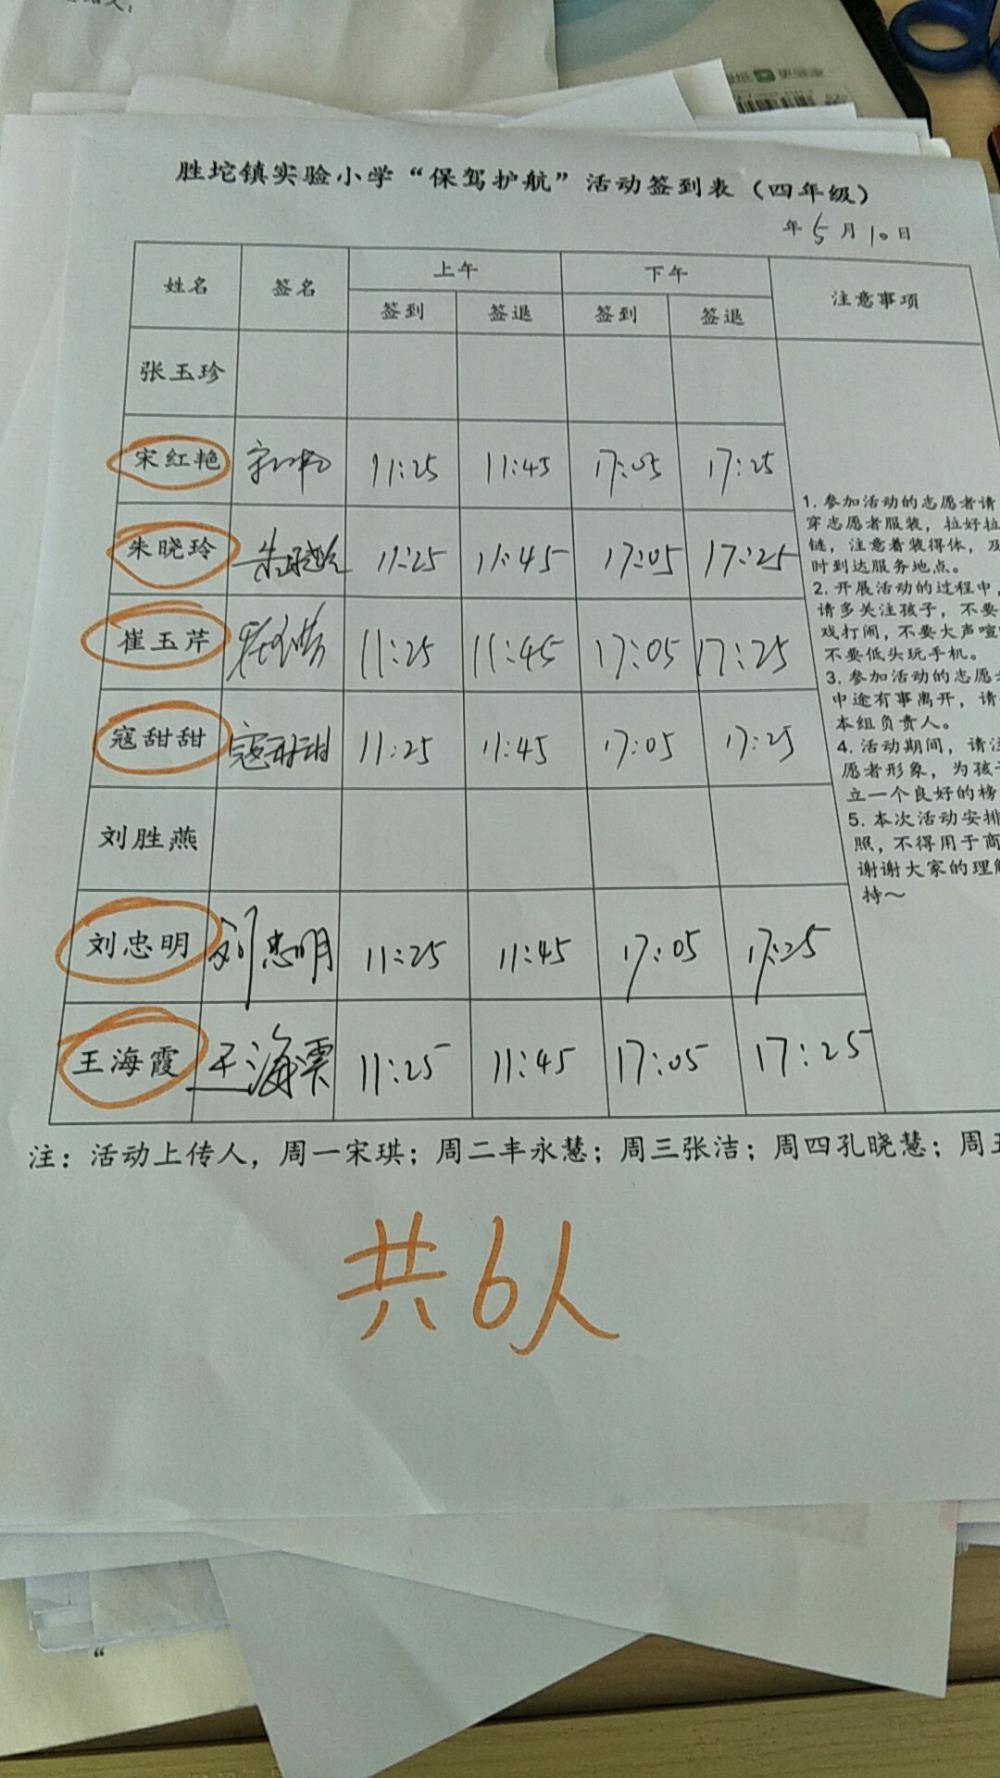 胜坨镇实验小学“保驾护航”活动签到表（四年级）
年5月10日
姓名 签名 上午 下午 注意事项
签到 签退 签到 签退
张玉珍
宋红艳 11:25 11:45 17:05 17:25
朱晓玲 朱晓玲 11:25 11:45 17:05 17:25
崔玉芹 崔玉芹 11:25 11:45 17:05 17:25
寇甜甜 寇甜甜 11:25 11:45 17:05 17:25
刘胜燕
刘忠明 刘忠明 11:25 11:45 17:05 17:25
王海霞 王海霞 11:25 11:45 17:05 17:25
1. 参加活动的志愿者请
穿志愿者服装，拉好拉
链，注意着装得体，及
时到达服务地点。
2. 开展活动的过程中，
请多关注孩子，不要
戏打闹，不要大声喧
不要低头玩手机。
3. 参加活动的志愿
中途有事离开，请
本组负责人。
4. 活动期间，请注
愿者形象，为孩子
立一个良好的榜
5. 本次活动安排
照，不得用于商
谢谢大家的理解
持～
注：活动上传人，周一宋琪；周二丰永慧；周三张洁；周四孔晓慧；周五
共6人